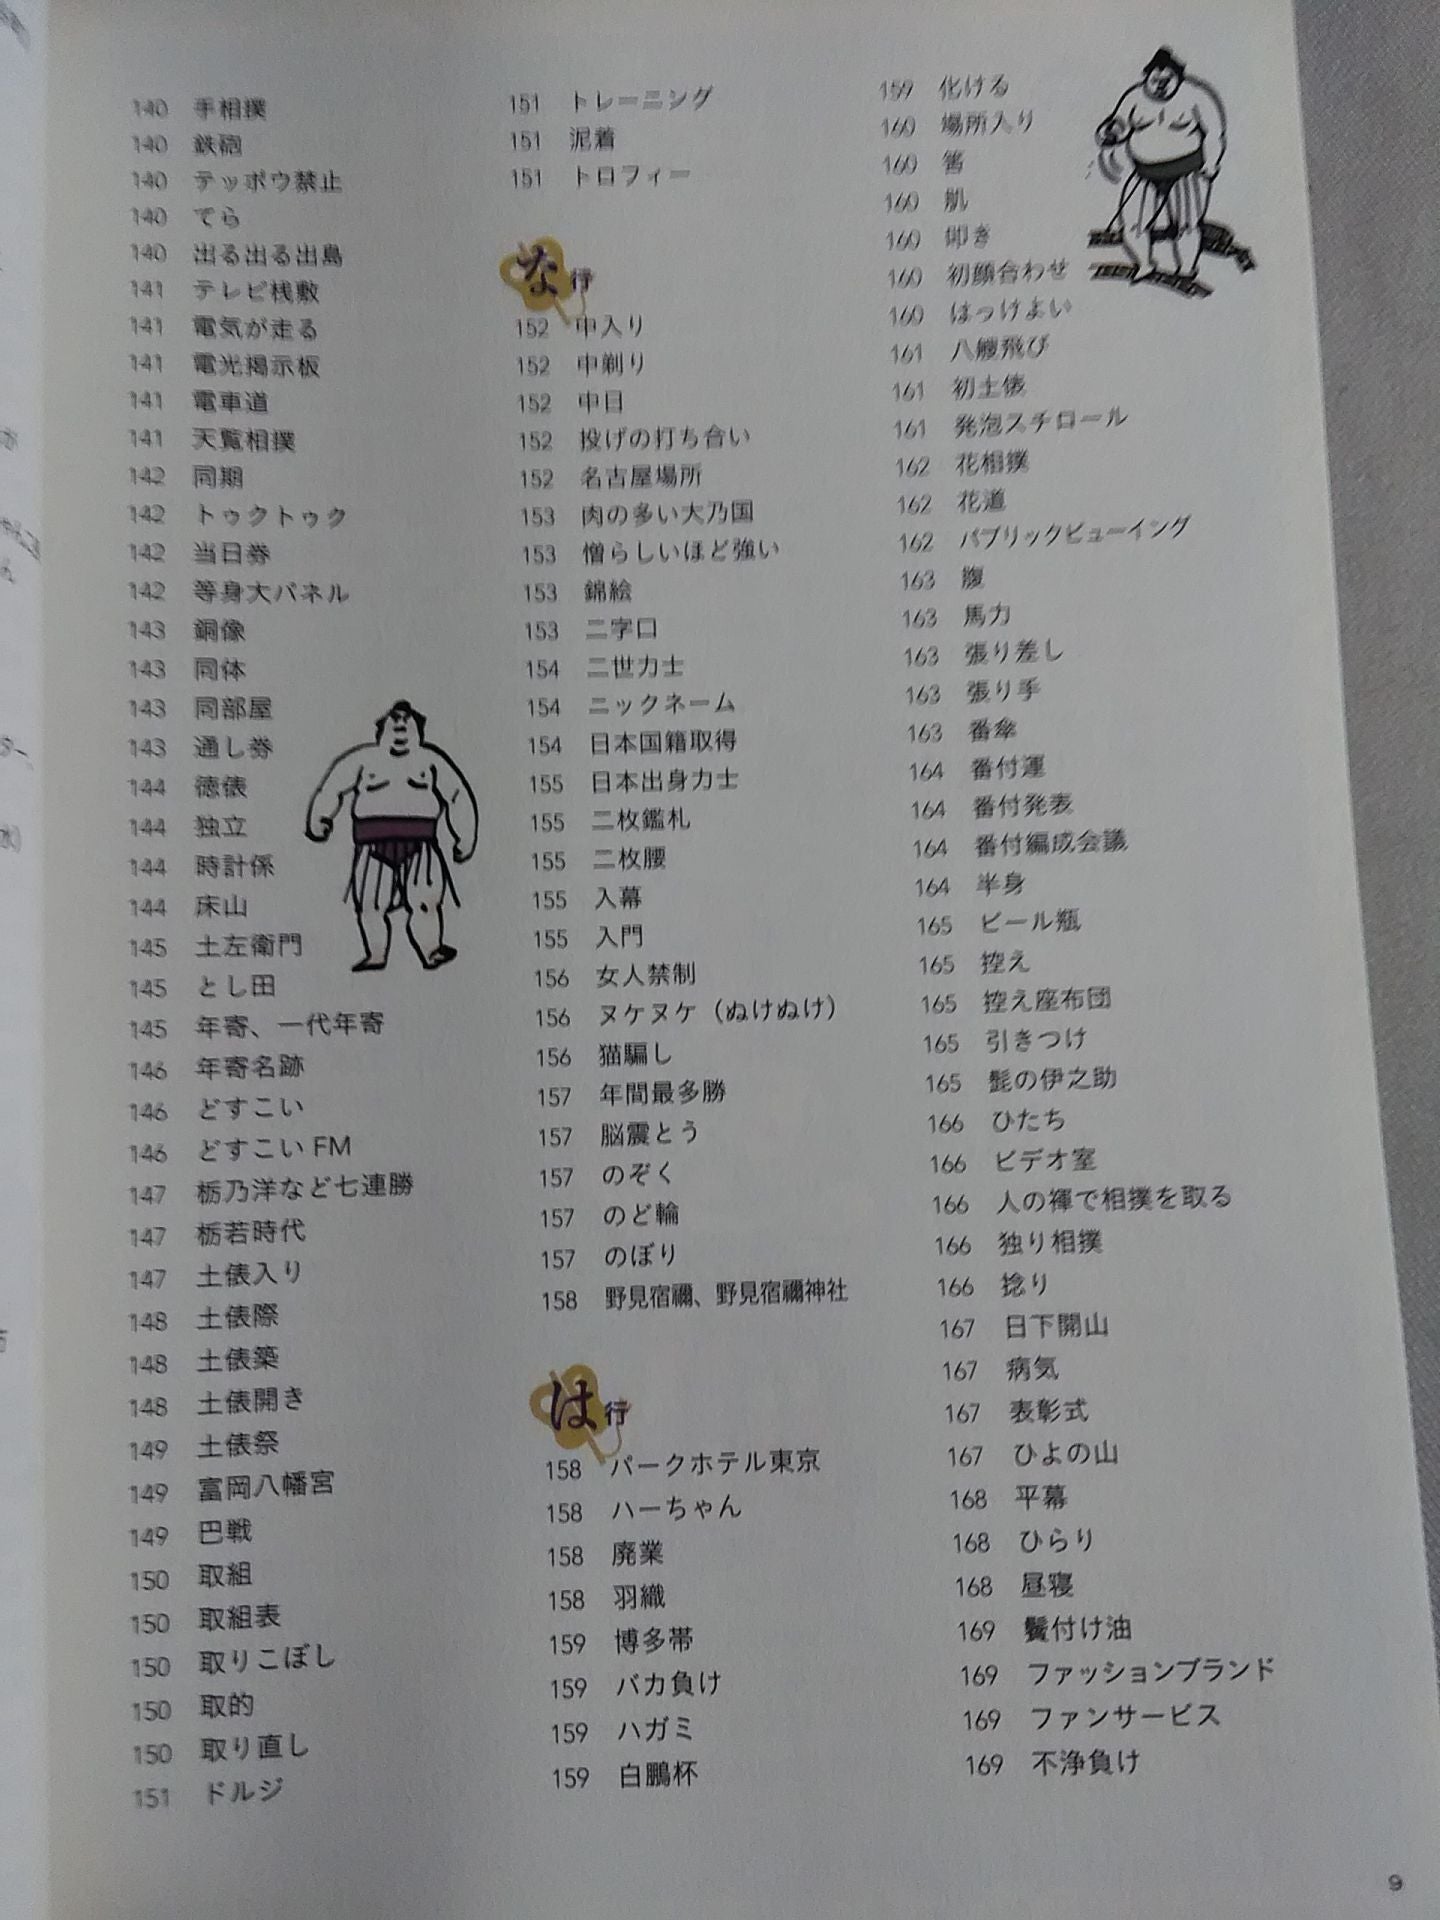 140 手相撲
140 鉄砲
140 テッポウ禁止
140 てら
140 出る出る出島
141 テレビ桟敷
141 電気が走る
141 電光掲示板
141 電車道
141 天覧相撲
142 同期
142 トゥクトゥク
142 当日券
142 等身大パネル
143 銅像
143 同体
143 同部屋
143 通し券
144 徳俵
144 独立
144 時計係
144 床山
145 土左衛門
145 とし田
145 年寄、一代年寄
146 年寄名跡
146 どすこい
146 どすこい FM
147 栃乃洋など七連勝
147 栃若時代
147 土俵入り
148 土俵際
148 土俵築
148 土俵開き
149 土俵祭
149 富岡八幡宮
149 巴戦
150 取組
150 取組表
150 取りこぼし
150 取的
150 取り直し
151 ドルジ
151 トレーニング
151 泥着
151 トロフィー
な行
152 中入り
152 中剃り
152 中日
152 投げの打ち合い
152 名古屋場所
153 肉の多い大乃国
153 憎らしいほど強い
153 錦絵
153 二字口
154 二世力士
154 ニックネーム
154 日本国籍取得
155 日本出身力士
155 二枚鑑札
155 二枚腰
155 入幕
155 入門
156 女人禁制
156 ヌケヌケ（ぬけぬけ）
156 猫騙し
157 年間最多勝
157 脳震とう
157 のぞく
157 のど輪
157 のぼり
158 野見宿禰、野見宿禰神社
は行
158 パークホテル東京
158 ハーちゃん
158 廃業
158 羽織
159 博多帯
159 バカ負け
159 ハガミ
159 白鵬杯
159 化ける
160 場所入り
160 箸
160 肌
160 叩き
160 初顔合わせ
160 はっけよい
161 八艘飛び
161 初土俵
161 発泡スチロール
162 花相撲
162 花道
162 パブリックビューイング
163 腹
163 馬力
163 張り差し
163 張り手
163 番傘
164 番付運
164 番付発表
164 番付編成会議
164 半身
165 ビール瓶
165 控え
165 控え座布団
165 引きつけ
165 髭の伊之助
166 ひたち
166 ビデオ室
166 人の褌で相撲を取る
166 独り相撲
166 捻り
167 日下開山
167 病気
167 表彰式
167 ひよの山
168 平幕
168 ひらり
168 昼寝
169 鬢付け油
169 ファッションブランド
169 ファンサービス
169 不浄負け
9